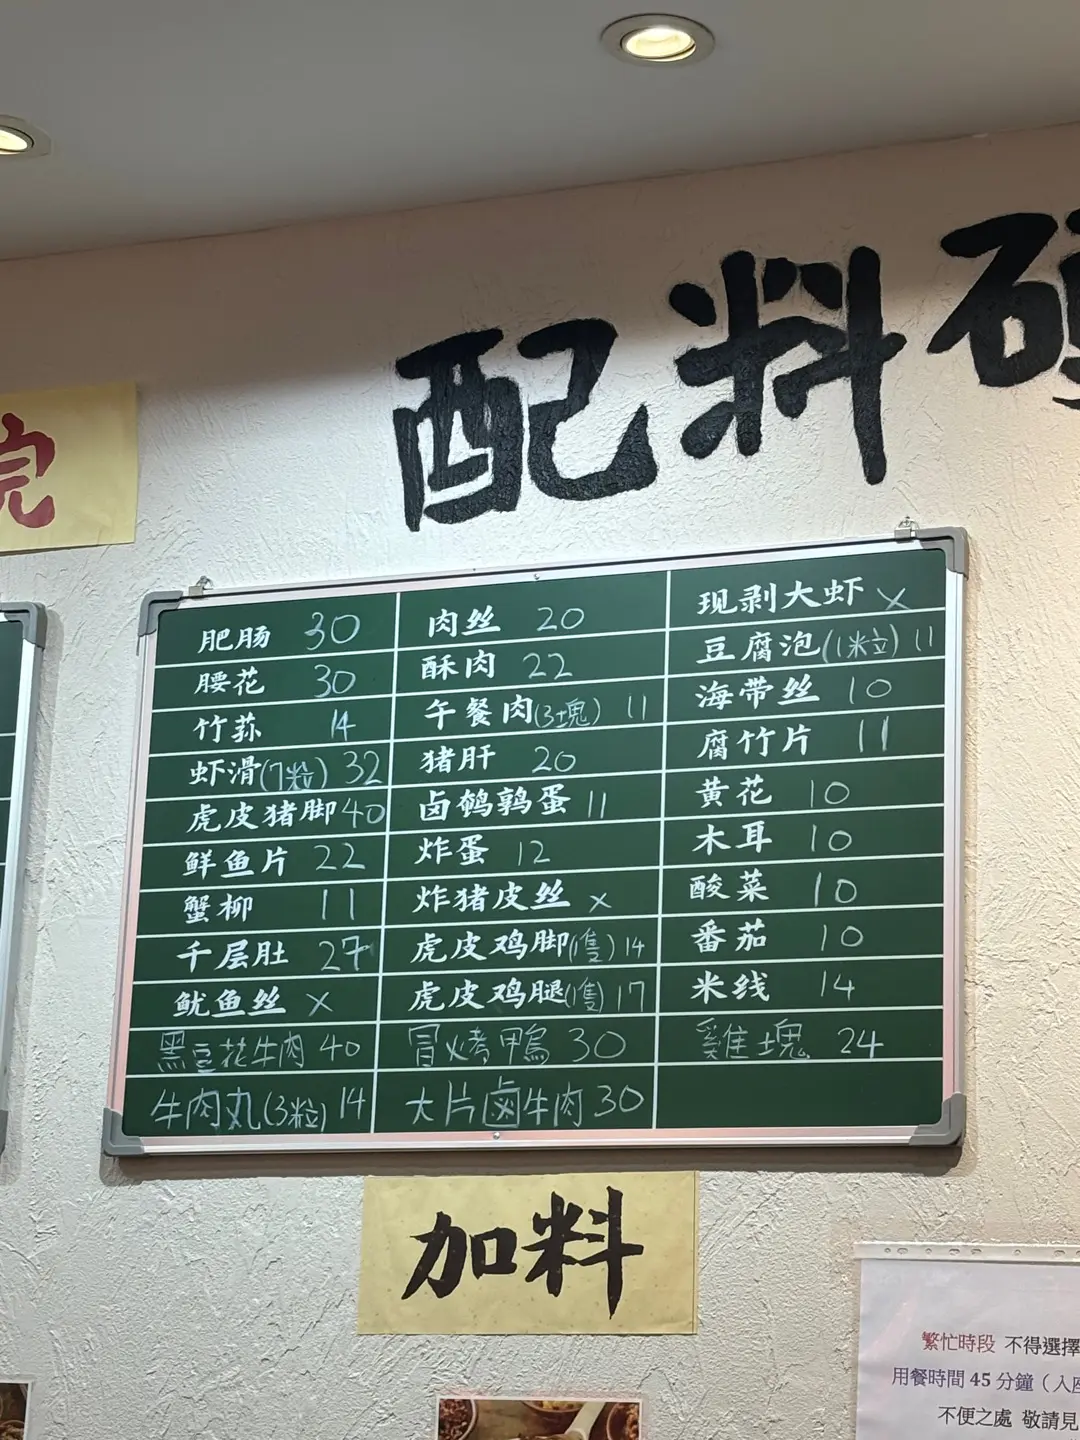 配料
完
肥肠 30
腰花 30
竹荪 14
虾滑(7粒) 32
虎皮猪脚 40
鲜鱼片 22
蟹柳 11
千层肚 27
鱿鱼丝 x
黑豆花牛肉 40
牛肉丸(3粒) 14
肉丝 20
酥肉 22
午餐肉(3塊) 11
猪肝 20
卤鹌鹑蛋 11
炸蛋 12
炸猪皮丝 x
虎皮鸡脚(1隻) 14
虎皮鸡腿(1隻) 17
冒烤鴨 30
大片鹵牛肉 30
现剥大虾 x
豆腐泡(1粒) 11
海带丝 10
腐竹片 11
黄花 10
木耳 10
酸菜 10
番茄 10
米线 14
雞塊 24
加料
繁忙時段 不得選擇
用餐時間 45 分鐘（入座
不便之處 敬請見